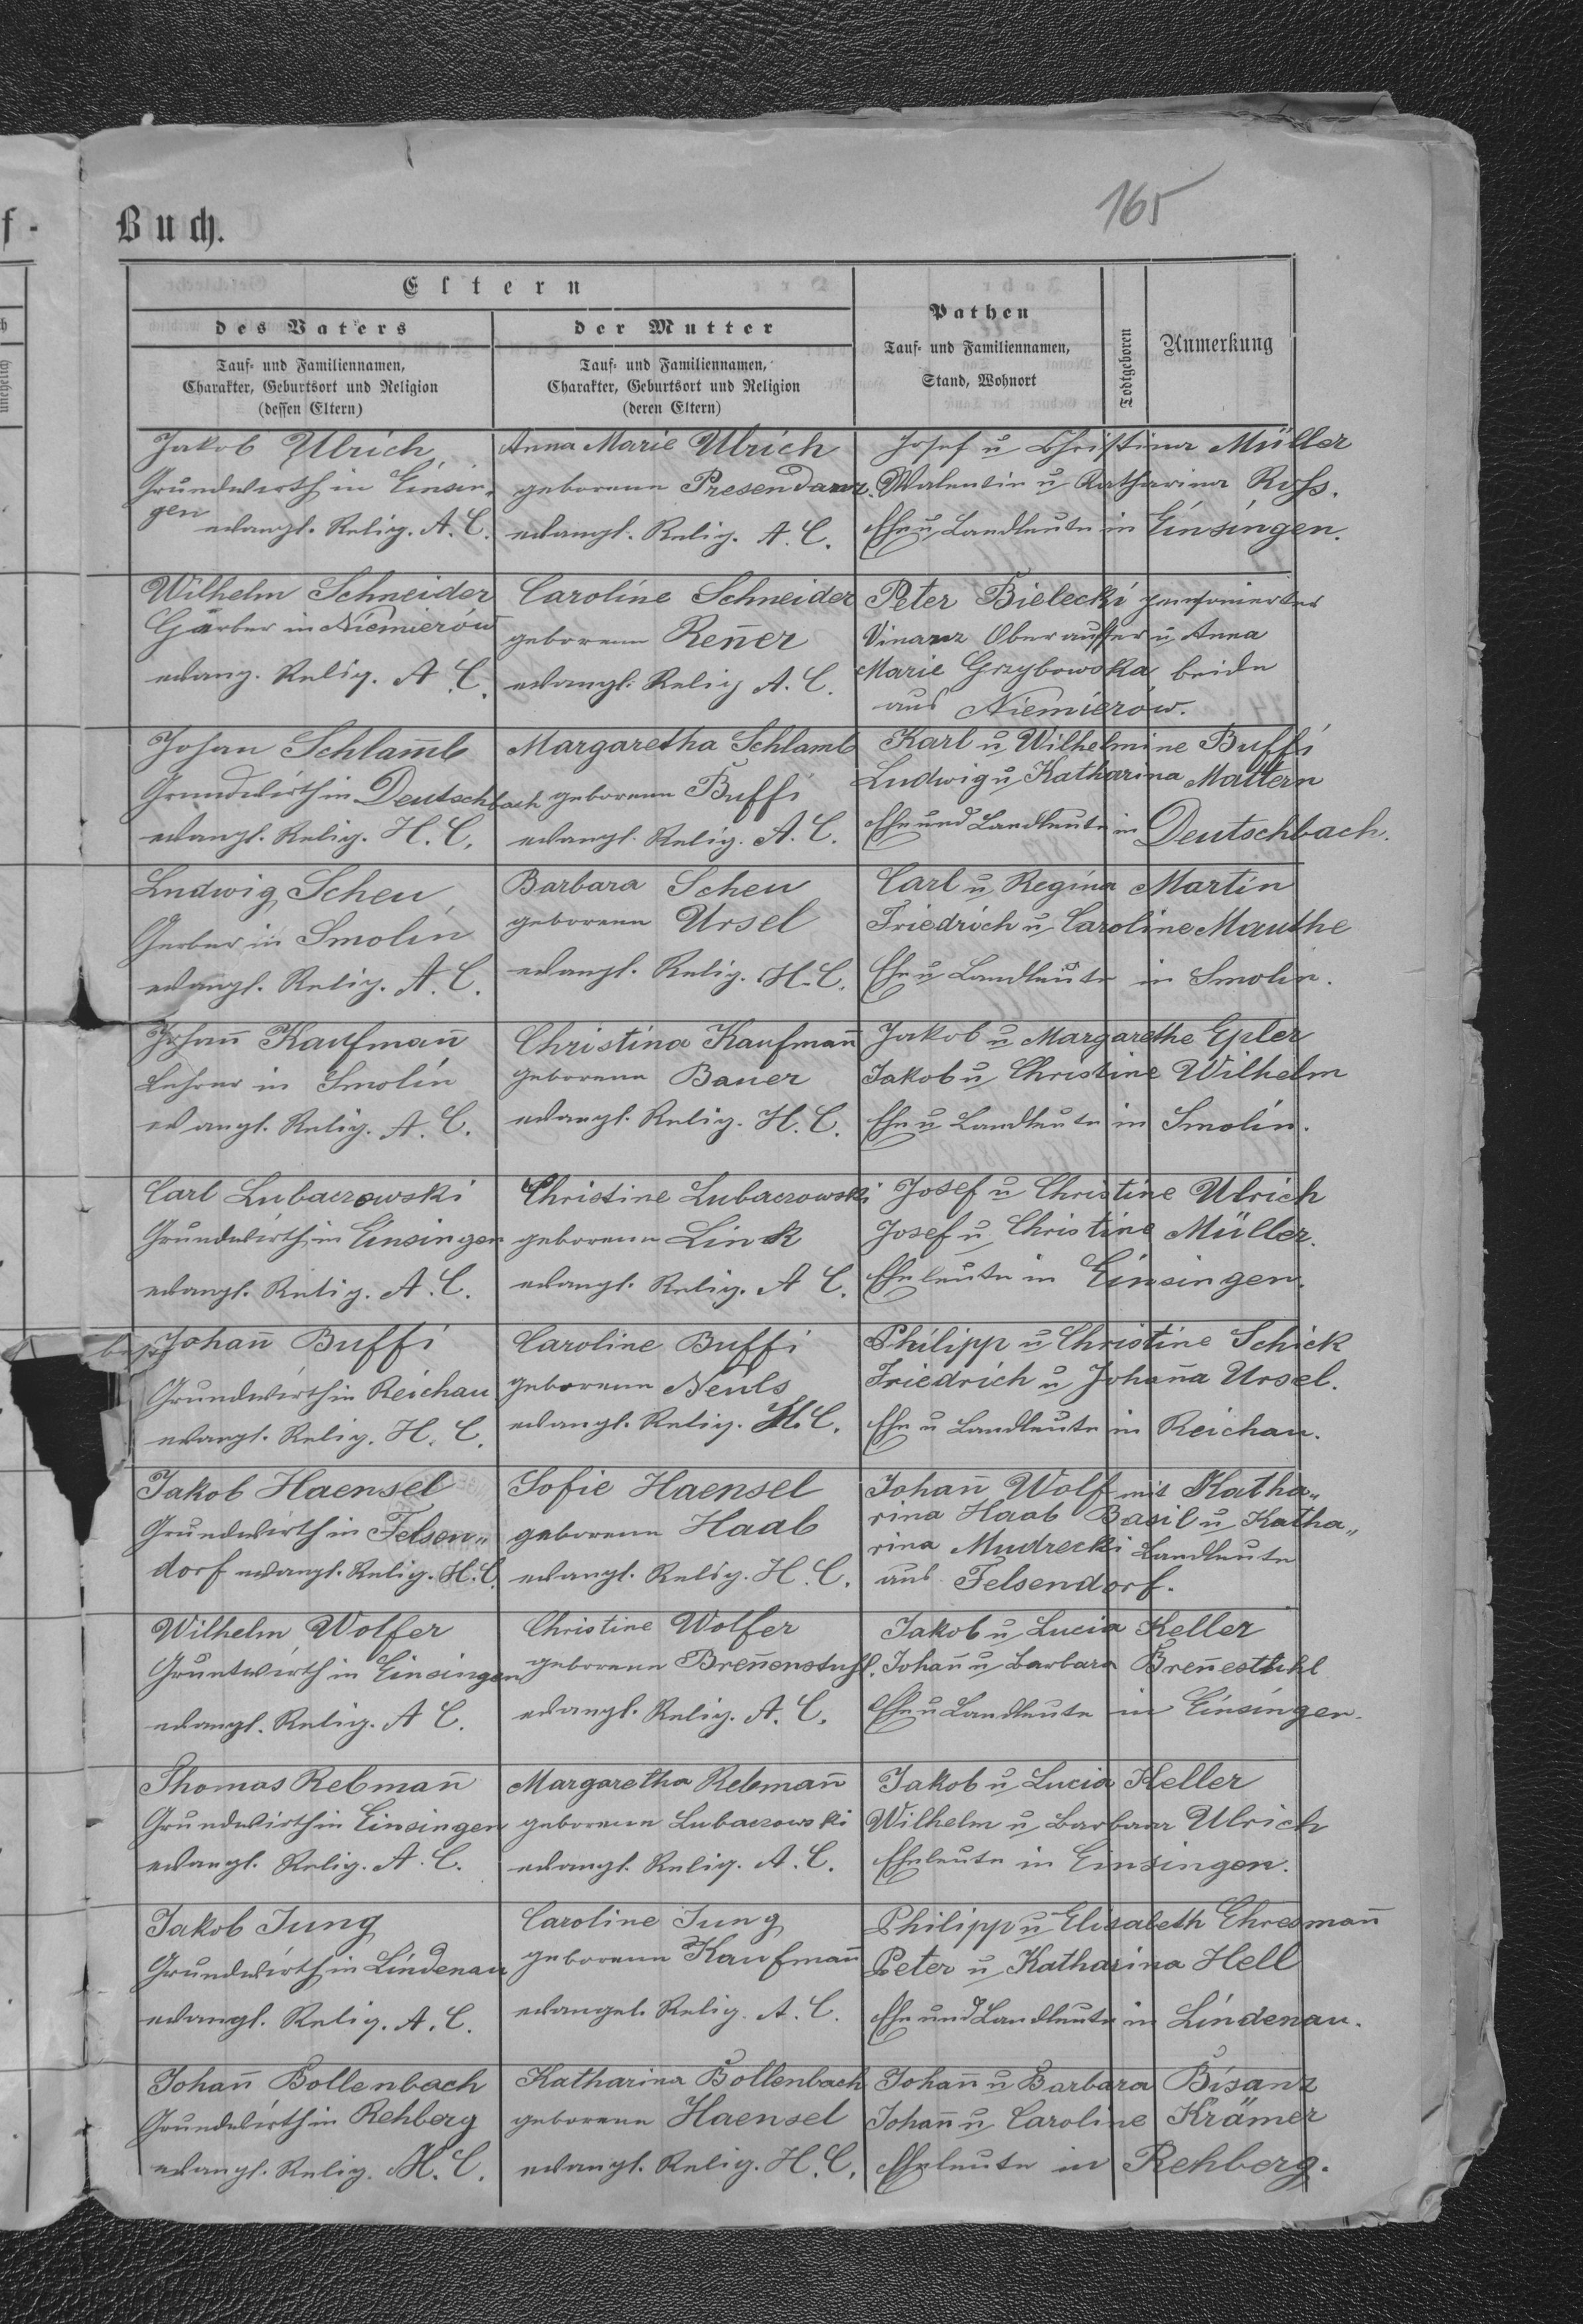 165
f -
Buch.
Eltern
des Vaters
der Mutter
Pathen
Tauf- und Familiennamen,
Stand, Wohnort
Todtgeboren
Anmerkung
Tauf- und Familiennamen,
Charakter, Geburtsort und Religion
(dessen Eltern)
Tauf- und Familiennamen,
Charakter, Geburtsort und Religion
(deren Eltern)
Jakob Ulrich
Grundwirth in Einsin-
gen evangl. Relig. A. C.
Anna Marie Ulrich
geborene Presendanz.
evangl. Relig. A. C.
Josef u Christina Müller
Walentin u Katharina Roß.
Ehe u Landleute in Einsingen.
Wilhelm Schneider
Gärber in Niemierów
evang. Relig. A. C.
Caroline Schneider
geborene Reñer
evangl. Relig A. C.
Peter Bielecki pensionierter
Oberaufser u Anna
Marie Grzybowska beide
aus Niemierów.
Johan Schlam̄b
Grundwirth in Deutschbach
evangl. Relig. H. C.
Margaretha Schlamb
geborene Buffi
evangl. Relig. A. C.
Karl u Wilhelmine Buffi
Ludwig u Katharina Mattern
Ehe und Landleute in Deutschbach.
Ludwig Scheu
Gerber in Smolin
evangl. Relig. A. C.
Barbara Scheu
geborene Ursel
evangl. Relig. H. C.
Carl u Regina Martin
Friedrich u Caroline Mauthe
Ehe u Landleute in Smolin.
Johañ Kaufmañ
Lehrer in Smolin
evangl. Relig. A. C.
Christina Kaufmañ
geborene Bauer
evangl. Relig. H. C.
Jakob u Margarethe Epler
Jakob u Christine Wilhelm
Ehe u Landleute in Smolin.
Carl Lubaczowski
Grundwirth in Einsingen
evangl. Relig. A. C.
Christine Lubaczowski
geborene Link
evangl. Relig. A C.
Josef u Christine Ulrich
Josef u Christine Müller.
Eheleute in Einsingen.
Johañ Buffi
Grundwirth in Reichau
evangl. Relig. H. C.
Caroline Buffi
geborene Neuls
evangl. Relig. H. C.
Philipp u Christine Schick
Friedrich u Johaña Ursel.
Ehe u Landleute in Reichau.
Jakob Haensel
Grundwirth in Felsen„
dorf evangl. Relig. H. C.
Sofie Haensel
geborene Haab
evangl. Relig. H. C.
Johañ Wolf mit Katha„
rina Haab Basil u Katha„
rina Mudrecki Landleute
aus Felsendorf.
Wilhelm Wolfer
Gruntwirth in Einsingen
evangl. Relig. A C.
Christine Wolfer
geborene Breñenstuhl.
evangl. Relig. A. C.
Jakob u Lucia Keller
Johañ u Barbara Breñestuhl
Ehe u Landleute in Einsingen.
Thomas Rebmañ
Grundwirth in Einsingen
evangl. Relig. A. C.
Margaretha Rebmañ
geborene Lubaczowski
evangl. Relig. A. C.
Jakob u Lucia Keller
Wilhelm u Barbara Ulrich
Eheleute in Einsingen.
Jakob Jung
Grundwirth in Lindenau
evangl. Relig. A. C.
Caroline Jung
geborene Kaufmañ
evangel. Relig. A. C.
Philipp u Elisabeth Ehresmañ
Peter u Katharina Hell
Ehe und Landleute in Lindenau.
Johañ Bollenbach
Grundwirth in Rehberg
evangl. Relig. H. C.
Katharina Bollenbach
geborene Haensel
evangl. Relig. H. C.
Johañ u Barbara Bisanz
Johañ u Caroline Krämer
Eheleute in Rehberg.